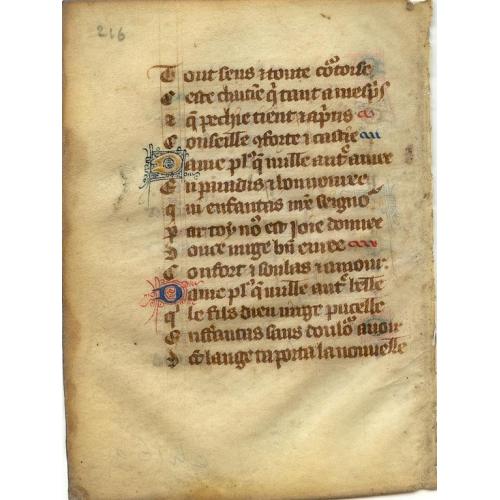 216
Tout sens & toute cõtorse
Ceste chutie q̃ tant a mesp̃s
Et q̃ pechie tient & ap̃ris
Conseille & forte & castie
Dame pl9 q̃ nulle aut͛ amee
En parudis & honnouree
qui enfantas nr̃e seigno͛
Par toy no9 est ioie donnee
Douce uirge bñ euree
Confort & soulas & amour.
Dame pl9 q̃ nulle aut͛ belle
q̃ le fils dieu uirge pucelle
Enffantas sans doulo͛ auoir
Dõ lange ta porta la nouuelle